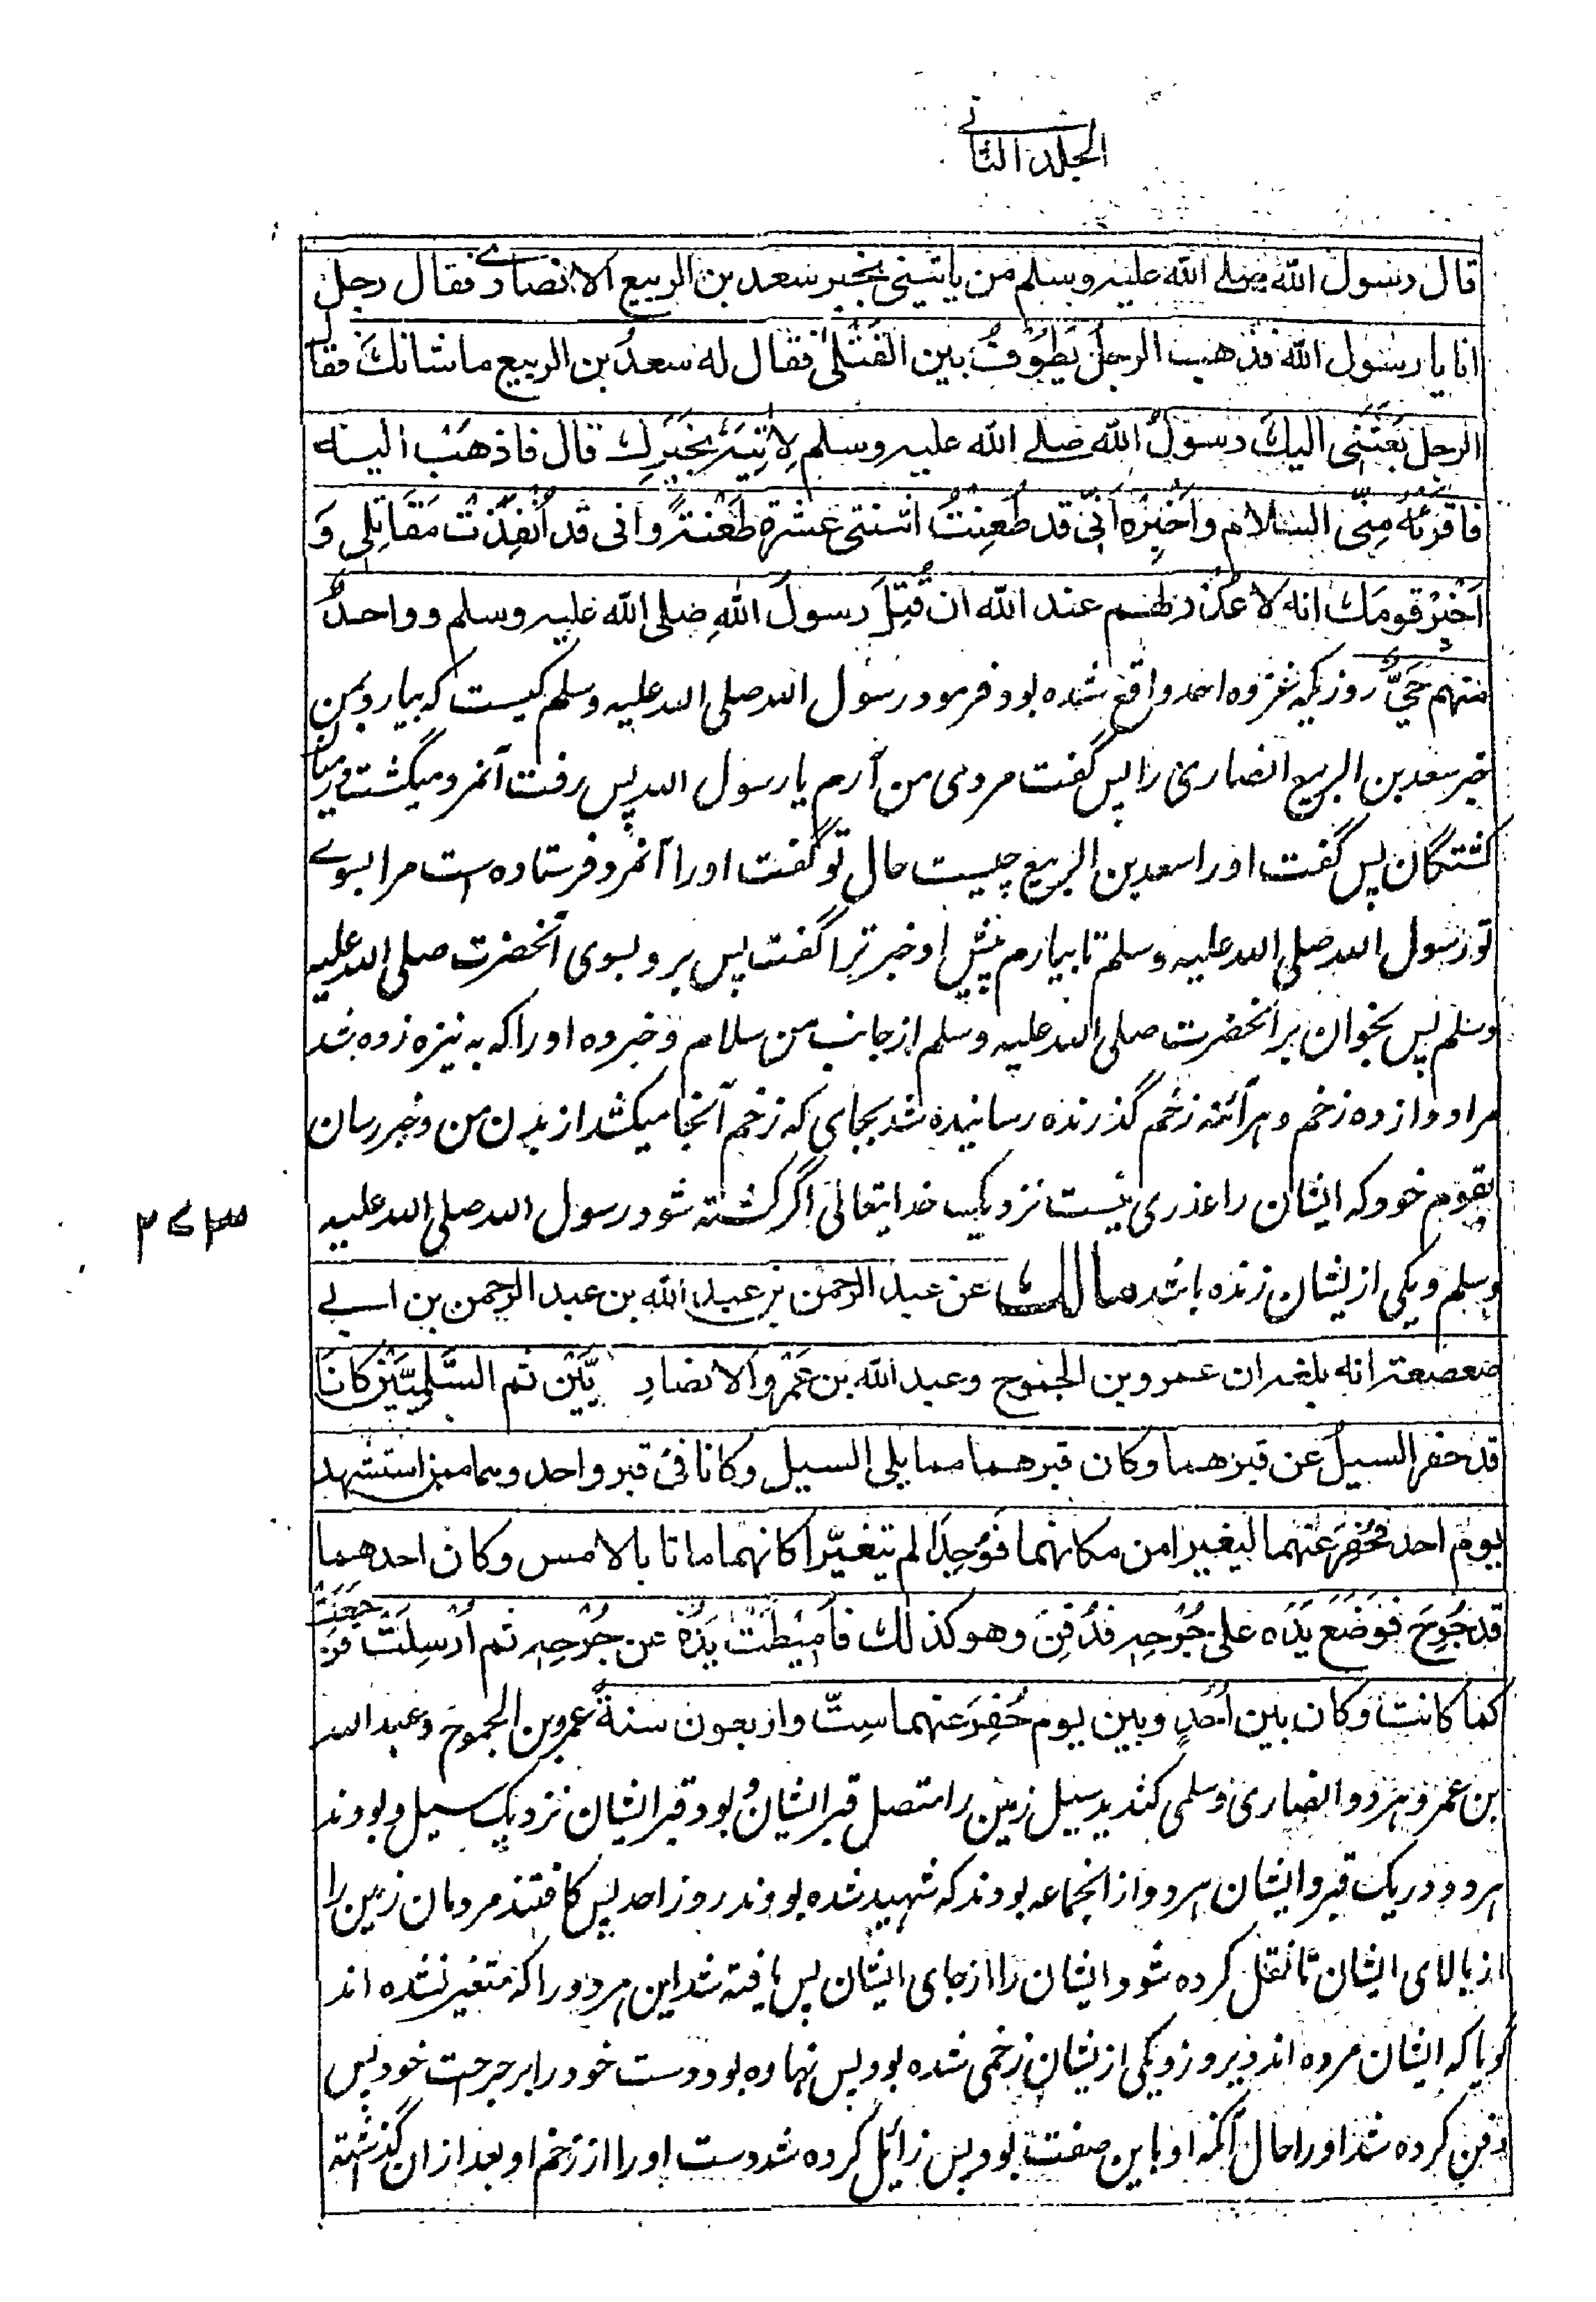 الجلد الثانی
قال رسول الله صلے الله علیه وسلم من یاتینی بخبر سعد بن الربیع الانصاری فقال رجل
انا یا رسول الله فذهب الرجلُ یَطُوْفُ بین القَتْلیٰ فقال له سعدُ بن الربیع ما شانك فقال
الرجل بَعَثَنِی الیك رسولُ الله صلے الله علیه وسلم لِاٰتِیَهٗ بِخَبَرِكَ قال فاذهَبْ الیه
فاقرئهُ مِنِّی السلام واَخْبِرْه اَنّی قد طُعِنْتُ اثنتی عشرة طَعْنَةً وانی قد اُنْفِذَتْ مَقَاتِلِی وَ
اَخْبِرْ قومَك انه لا عُذْرَ لهم عند الله ان قُتِلَ رسولُ اللهِ صلی الله علیه وسلم وواحدٌ
منهم حَیٌّ روزیکه غزوه احد واقع شده بود فرمود رسول الله صلی الله علیه وسلم کیست که بیارد بمن
خبر سعد بن الربیع انصاری را پس گفت مردی من آرم یا رسول الله پس رفت آنمرد میگشت درمیان
کشتگان پس گفت اورا سعد بن الربیع چیست حال تو گفت اورا آنمرد فرستاده است مرا بسوے
تو رسول الله صلی الله علیه وسلم تا بیارم پیش او خبر ترا گفت پس برو بسوی آنحضرت صلی الله علیه
وسلم پس بخوان بر آنحضرت صلی الله علیه وسلم از جانب من سلام و خبر ده اورا که به نیزه زده شد
مرا دوازده زخم و هرآئنه زخم گذرنده رسانیده شد بجای که زخم آنجا میکشد از بدن من و خبر رسان
بقوم خود که ایشان را عذری نیست نزدیک خدایتعالی اگر کشته شود رسول الله صلی الله علیه
وسلم ویکی ازیشان زنده باشد مالك عن عبد الرحمن بن عبد الله بن عبد الرحمن بن ابی
صعصعة انه بلغه ان عمرو بن الجموح وعبد الله بن عَمْرٍو الانصارِ یَّیْن ثم السَّلَمِیَّیْنِ کانَا
قد حفر السیلُ عن قبرهما وکان قبرهما مما یلی السیل وکانا فی قبر واحد وهما ممن استشهد
یوم احد فحُفِرَ عنهما لیغیرا من مکانهما فَوُجِدَا لم یتغیّرا کانهما ماتا بالامس وکان احدهما
قد جُرِحَ فوَضَعَ یَدَه علی جُرْحِهٖ فدُفِنَ وهو کذلك فاُمِیْطَتْ یَدُهٗ عن جُرْحِهٖ ثم اُرْسِلَتْ فَرَجَعَتْ
کما کانت وکان بین اُحُدٍ وبین یوم حُفِرَ عنهما سِتٌّ واربعون سنةً عمرو بن الجموح وعبد الله
بن عمرو هردو انصاری وسلمی کندید سیل زمین را متصل قبر ایشان و بود قبر ایشان نزدیک سیل و بودند
هردو در یک قبر و ایشان هردو از انجماعه بودند که شهید شده بودند روز احد پس کافتند مردمان زمین را
از بالای ایشان تا نقل کرده شود ایشان را از جای ایشان پس یافته شد این هردو را که متغیر نشده اند
گویا که ایشان مرده اند دیروز ویکی ازیشان زخمی شده بود پس نهاده بود دست خود را بر جراحت خود پس
دفن کرده شد اورا حال آنکه او باین صفت بود پس زائل کرده شد دست اورا از زخم او بعد ازان گذشته
۲۷۳